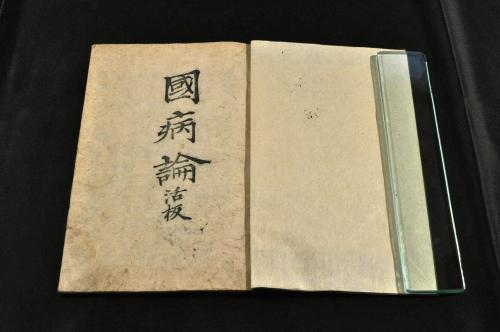 國病論活板